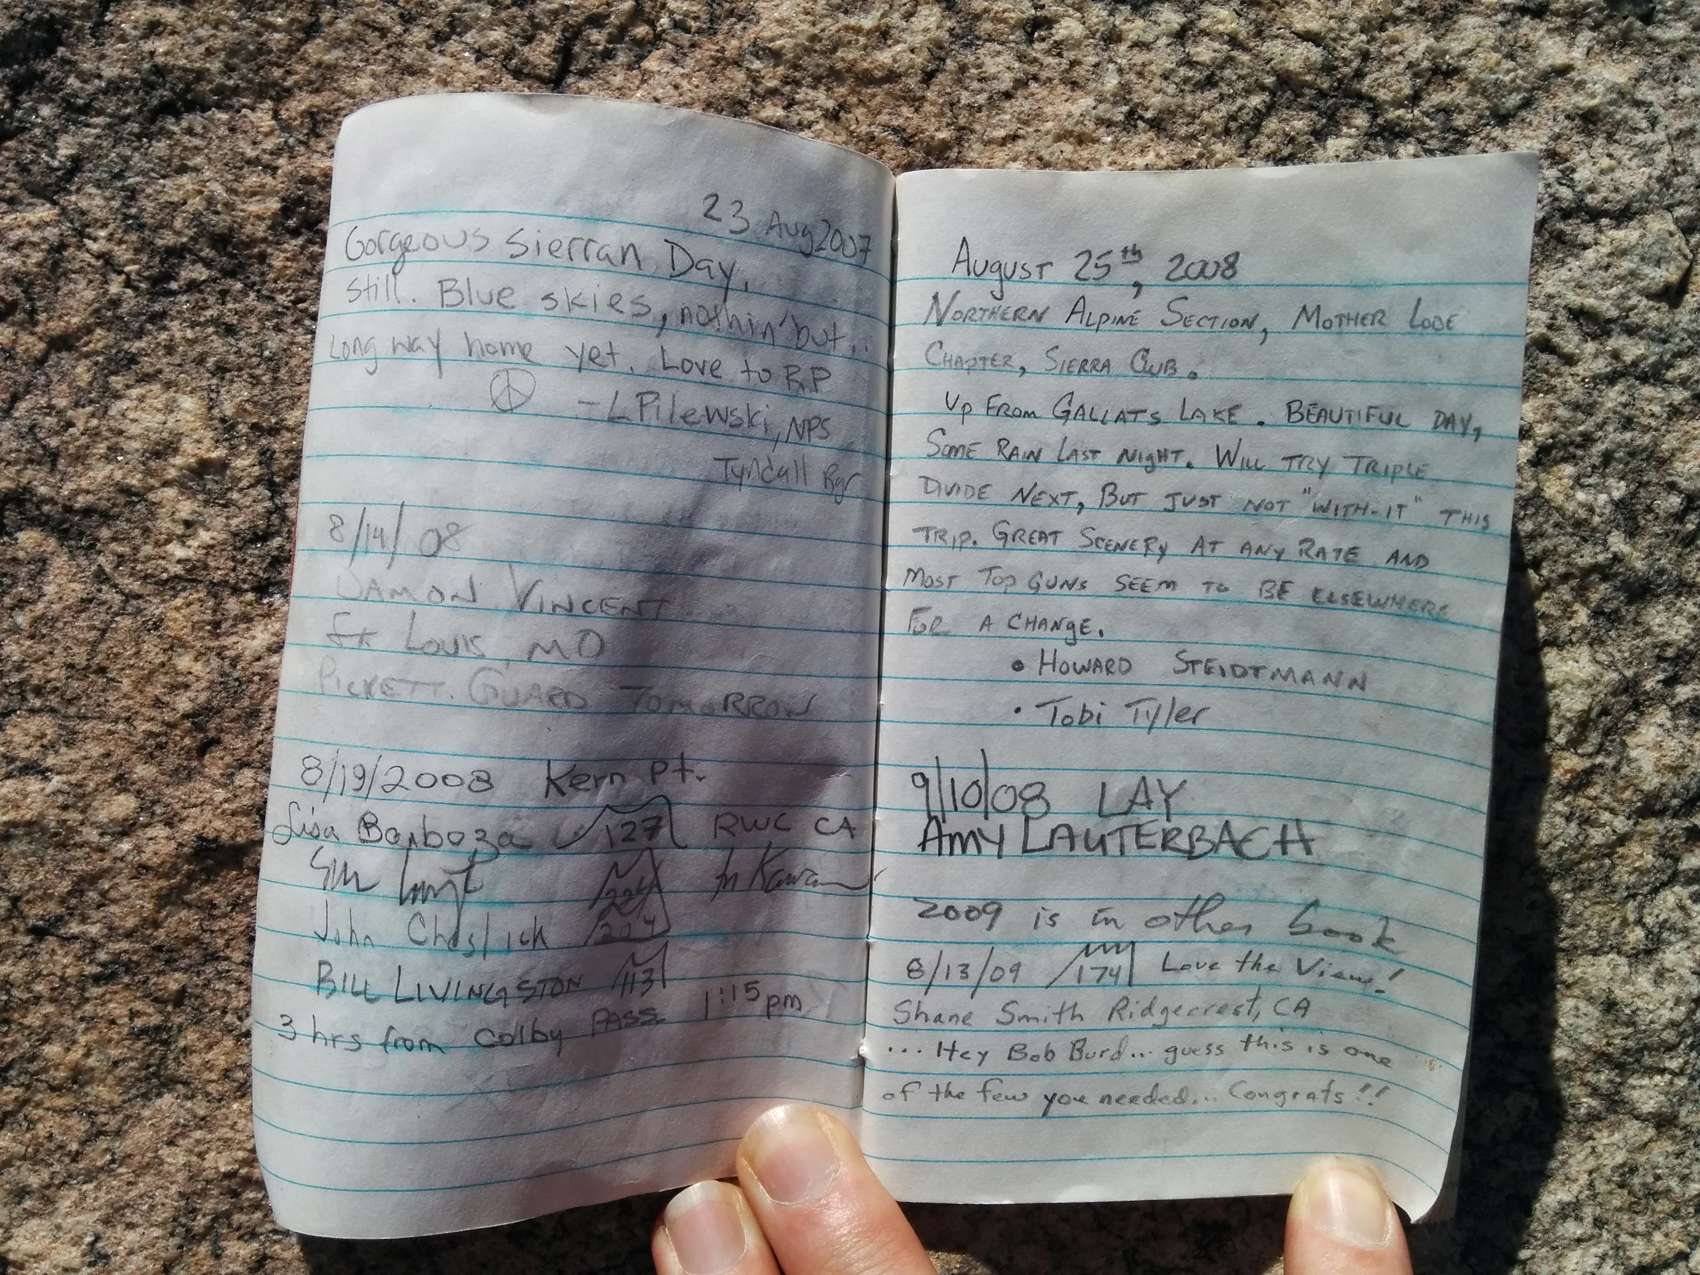 23 Aug 2007
Gorgeous Sierran Day,
still. Blue skies, nothin' but..
Long way home yet. Love to RP
- L Pilewski, NPS
Tyndall Rgr
8/14/08
DAMON VINCENT
St Louis, MO
PICKETT. GUARD TOMORROW
8/19/2008 Kern Pt.
Lisa Barboza 127 RWC CA
224
John Cheslick 224
BILL LIVINGSTON 113
3 hrs from Colby PASS 1:15 pm
AUGUST 25th, 2008
NORTHERN ALPINE SECTION, MOTHER LODE
CHAPTER, SIERRA CLUB.
UP FROM GALLATS LAKE. BEAUTIFUL DAY,
SOME RAIN LAST NIGHT. WILL TRY TRIPLE
DIVIDE NEXT, BUT JUST NOT "WITH-IT" THIS
TRIP. GREAT SCENERY AT ANY RATE AND
MOST TOP GUNS SEEM TO BE ELSEWHERE
FOR A CHANGE.
• HOWARD STEIDTMANN
• Tobi Tyler
9/10/08 LAY
AMY LAUTERBACH
2009 is in other book
8/13/09 174 Love the View!
Shane Smith Ridgecrest, CA
... Hey Bob Burd... guess this is one
of the few you needed... Congrats!!